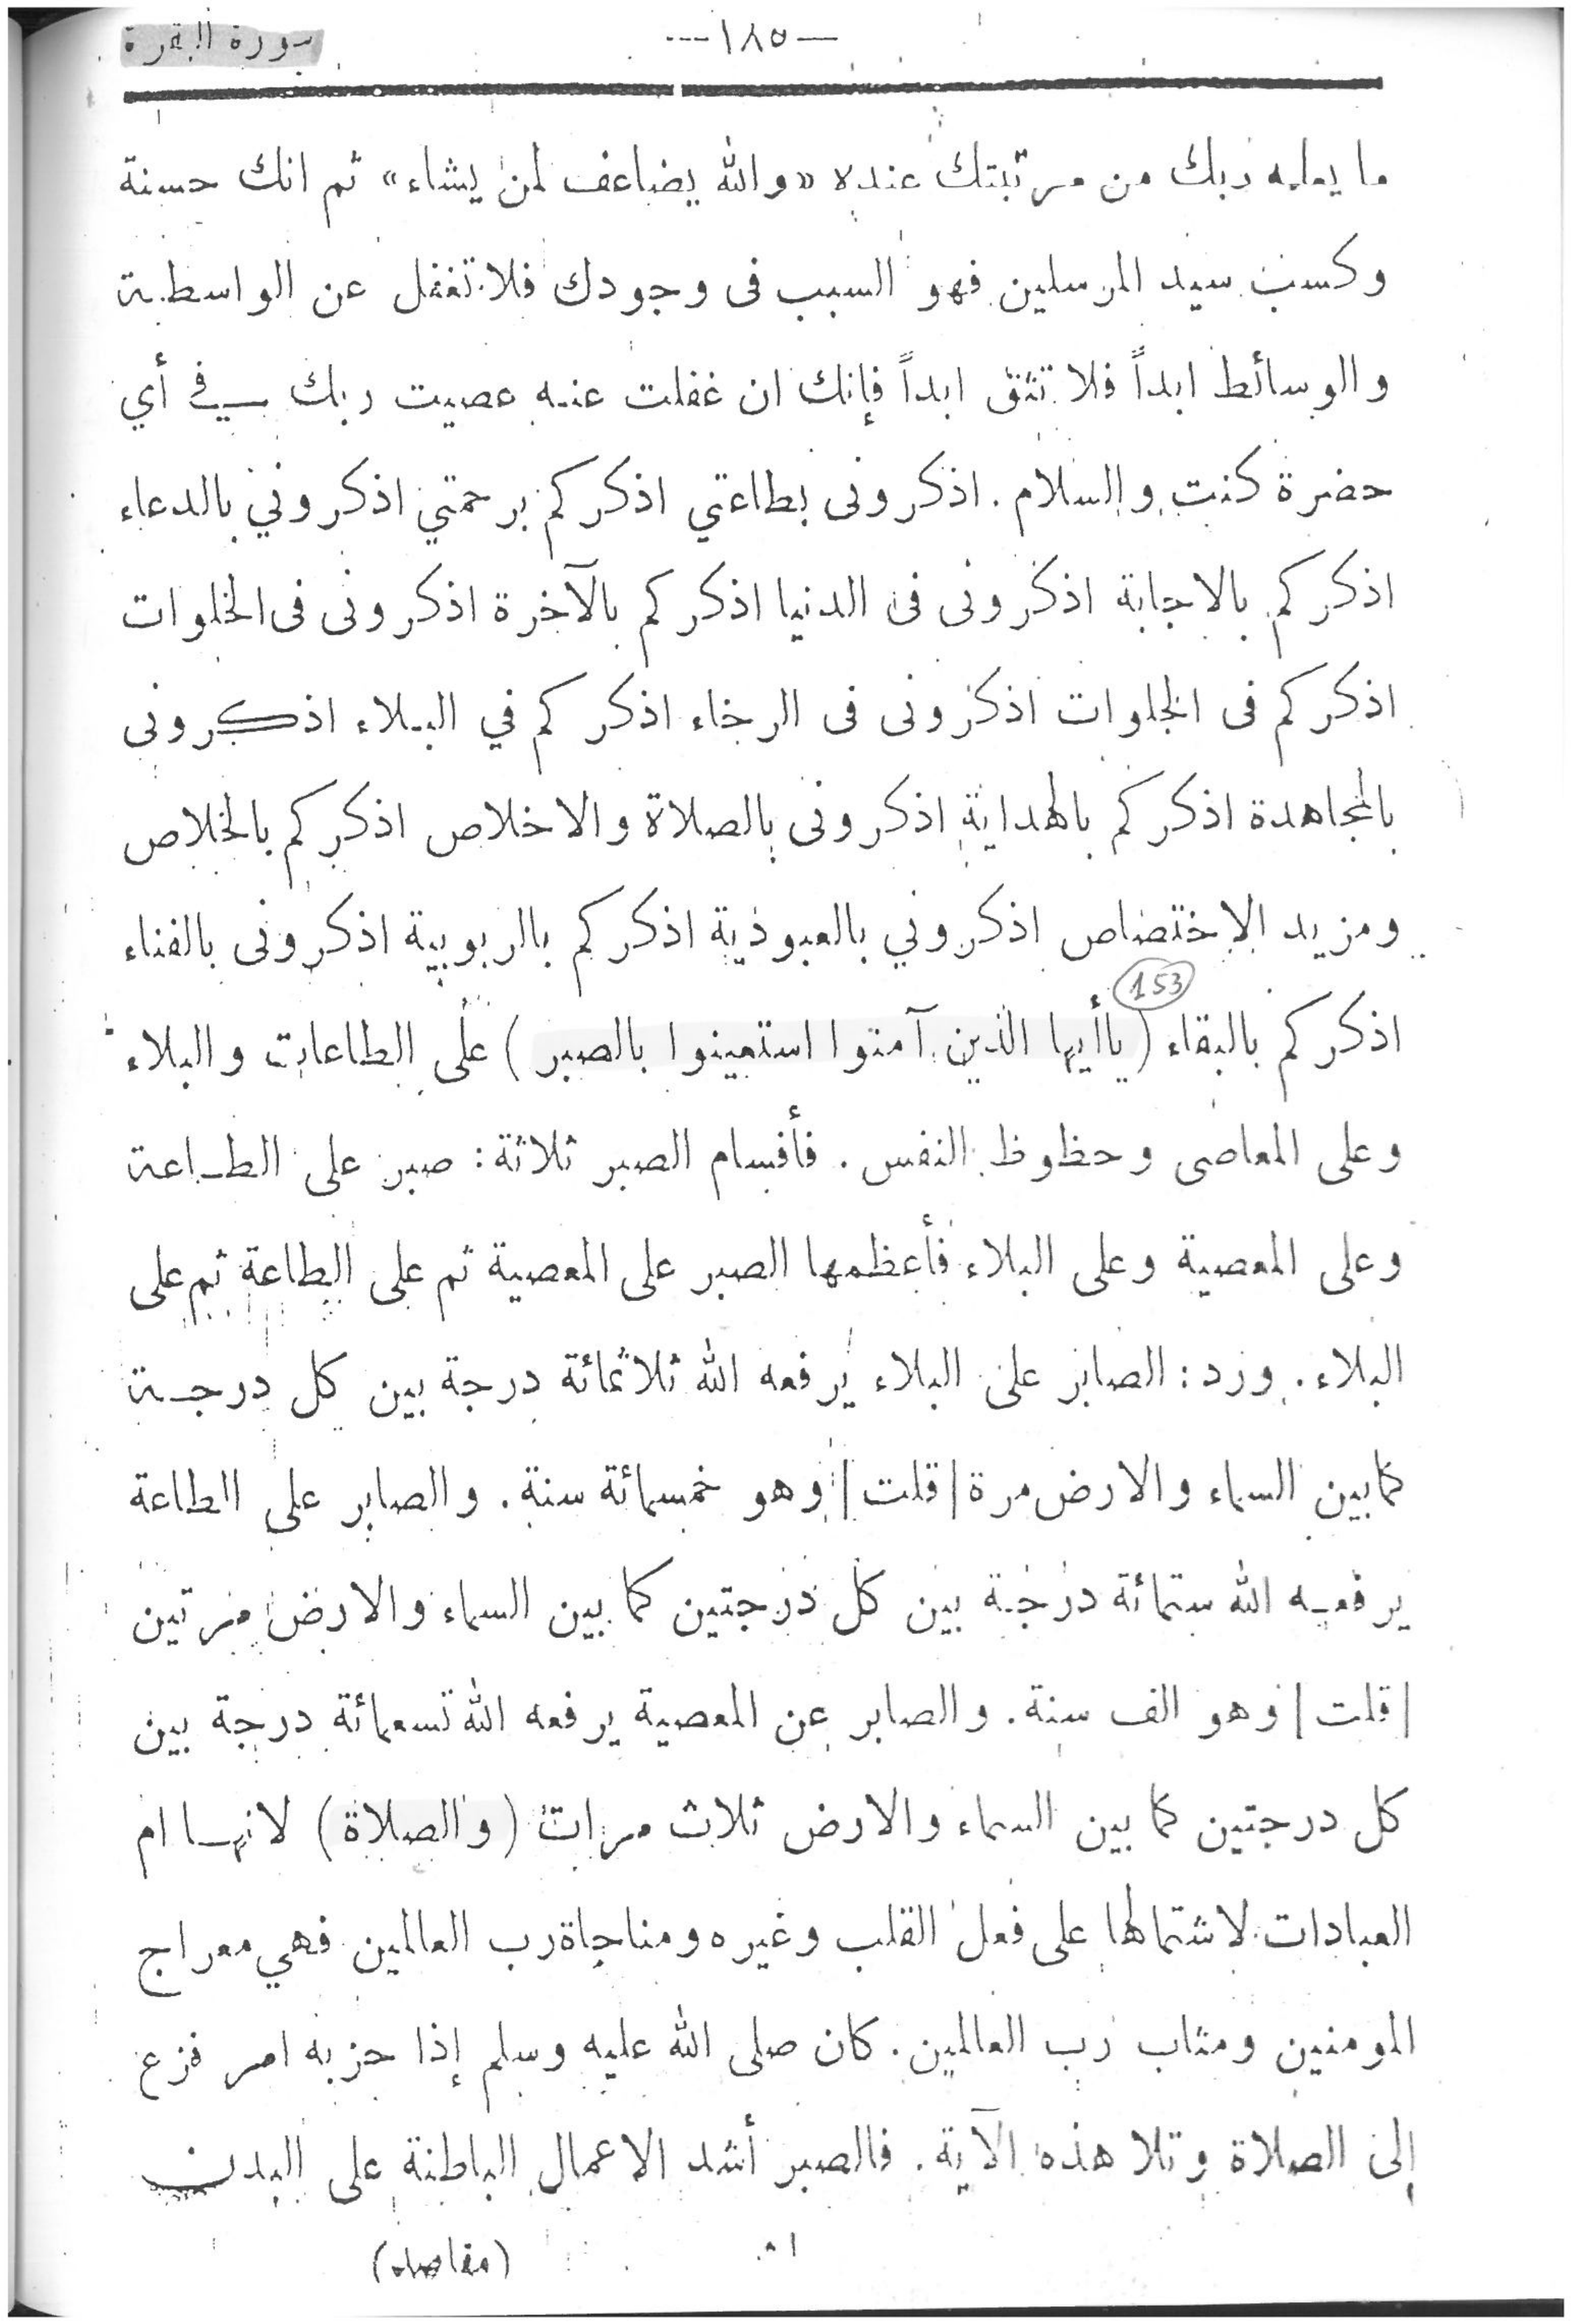 سورة البقرة
— ١٨٥ —
ما يعلمه ربك من مرتبتك عنده «والله يضاعف لمن يشاء» ثم انك حسنة
وكسب سيد المرسلين فهو السبب فى وجودك فلا تغفل عن الواسطة
والوسائط ابداً فلا تثق ابداً فإنك ان غفلت عنه عصيت ربك في أي
حضرة كنت والسلام. اذكرونى بطاعتي اذكركم برحمتي اذكروني بالدعاء
اذكركم بالاجابة اذكرونى فى الدنيا اذكركم بالآخرة اذكرونى فى الخلوات
اذكركم فى الجلوات اذكرونى فى الرخاء اذكركم في البلاء اذكرونى
بالمجاهدة اذكركم بالهداية اذكرونى بالصلاة والاخلاص اذكركم بالخلاص
ومزيد الاختصاص اذكروني بالعبوذية اذكركم بالربوبية اذكرونى بالفناء
153
اذكركم بالبقاء (ياأيها الذين آمنوا استعينوا بالصبر) على الطاعات والبلاء
وعلى المعاصى وحظوظ النفس. فأقسام الصبر ثلاثة: صبر على الطاعة
وعلى المعصية وعلى البلاء فأعظمها الصبر على المعصية ثم على الطاعة ثم على
البلاء. ورد: الصابر على البلاء يرفعه الله ثلاثمائة درجة بين كل درجة
كما بين السماء والارض مرة |قلت| وهو خمسمائة سنة. والصابر على الطاعة
يرفعه الله ستمائة درجة بين كل درجتين كما بين السماء والارض مرتين
|قلت| وهو الف سنة. والصابر عن المعصية يرفعه الله تسعمائة درجة بين
كل درجتين كما بين السماء والارض ثلاث مرات (والصلاة) لانها ام
العبادات لاشتمالها على فعل القلب وغيره ومناجاة رب العالمين فهي معراج
المومنين ومثاب رب العالمين. كان صلى الله عليه وسلم إذا حزبه امر فزع
إلى الصلاة وتلا هذه الآية. فالصبر أشد الاعمال الباطنة على البدن
(مقاصد)